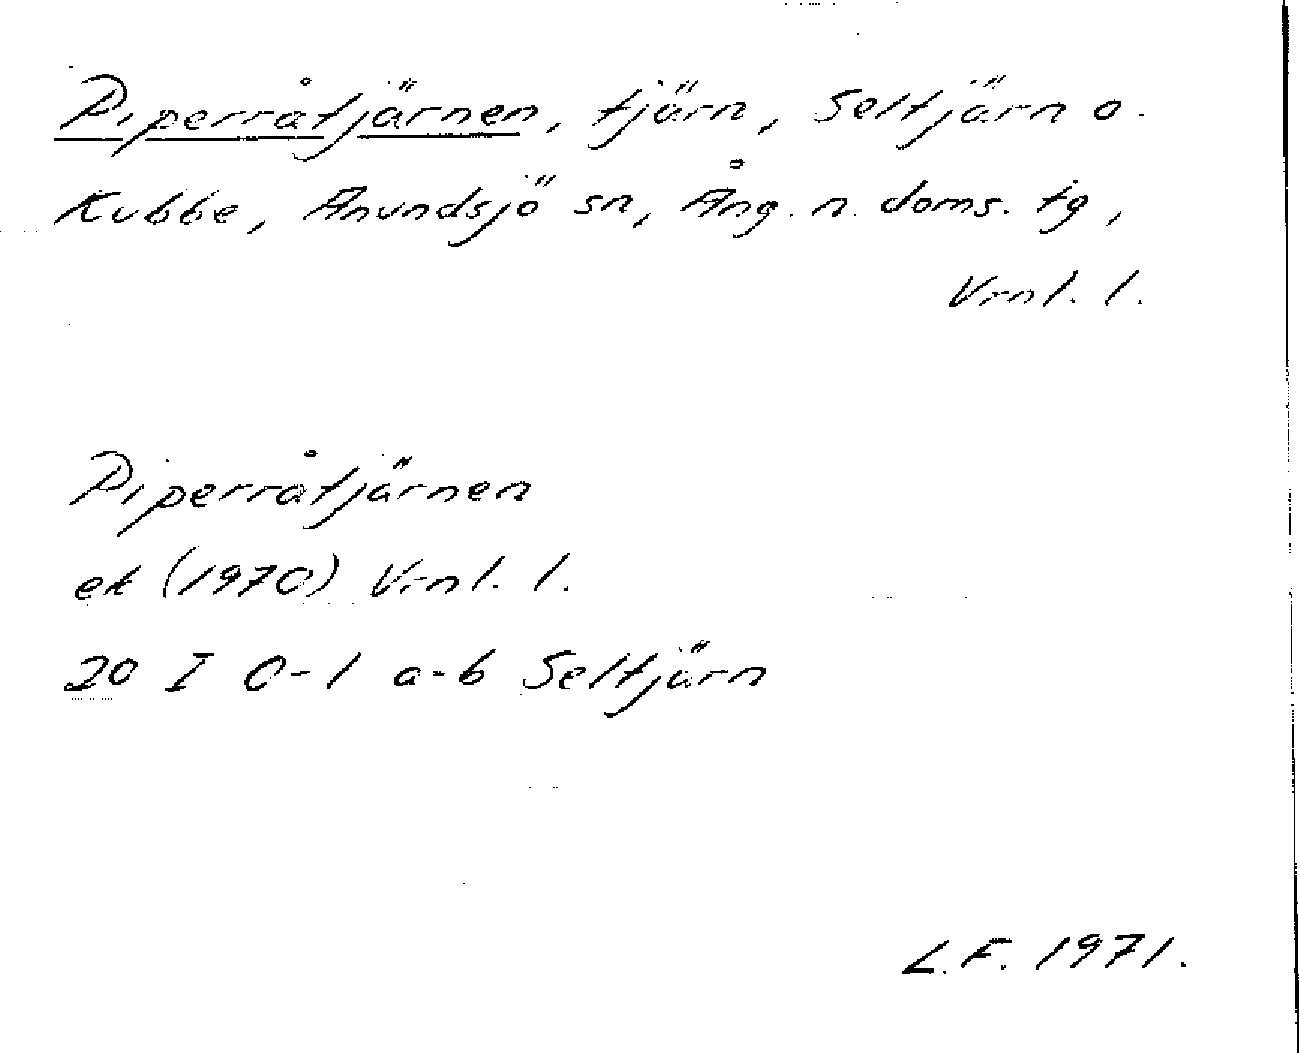 Piperråtjärnen, tjärn, Seltjärn o.
Kubbe, Anundsjö sn, Ång. n. doms. tg,
Vrnl. l.
Piperråtjärnen
ek (1970) Vrnl. l.
20 I 0-1 a-b Seltjärn
L.F. 1971.